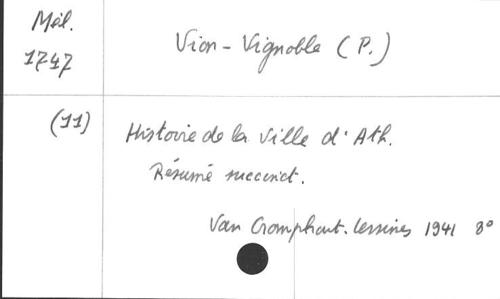 Mél.
1747
Vion-Vignoble (P.)
(11)
Histoire de la Ville d'Ath.
Résumé succinct.
Van Cromphout. Lessines 1941 8°